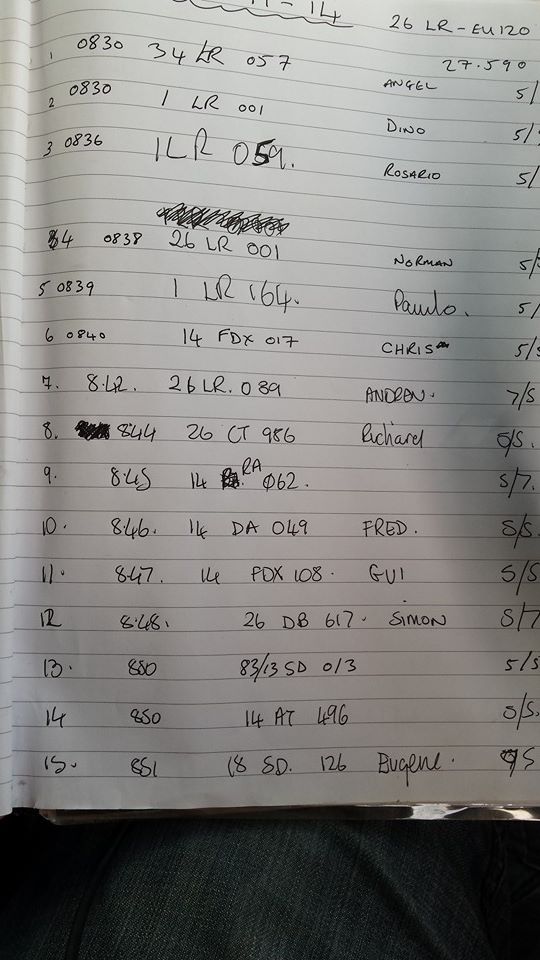 - 14 26 LR - EU120
27.590
1 0830 34 LR 057 ANGEL 5/
2 0830 1 LR 001 DINO 5/
3 0836 1LR 059. ROSARIO 5/
4 0838 26 LR 001 NORMAN 5/
5 0839 1 LR 164. Paulo. 5/
6 0840 14 FDX 017 CHRIS 5/5
7. 8.42. 26 LR. 089 ANDREW. 7/5
8. 844 26 CT 986 Richard 5/5.
9. 8.45 14 RA 062. 5/7.
10. 8.46. 14 DA 049 FRED. 5/5
11. 8.47. 14 FDX 108. GUI 5/5
12 8.48. 26 DB 617. SIMON 5/7
13. 850 83/13 SD 013 5/5
14 850 14 AT 496 5/5.
15. 851 18 SD. 126 Eugene. 9/5